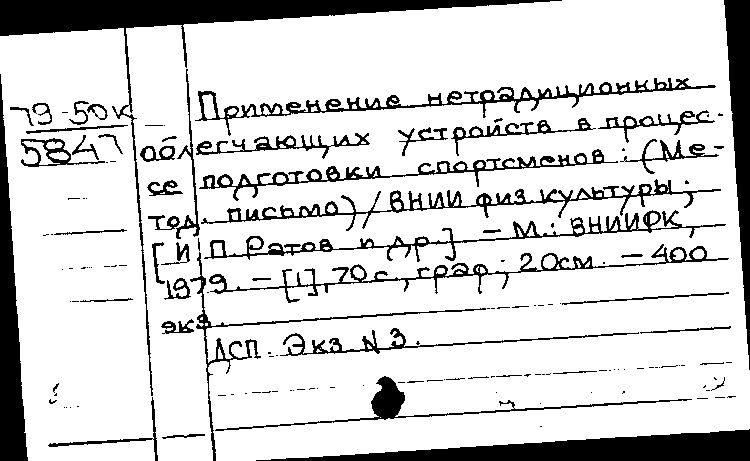 79-50к
5847
Применение нетрадиционных
облегчающих устройств в процес-
се подготовки спортсменов: (Ме-
тод. письмо)/ВНИИ физ. культуры;
[И.П. Ратов и др.] - М.: ВНИИФК,
1979. - [1], 70 с., граф; 20см. - 400
экз.
ДСП. Экз N 3.